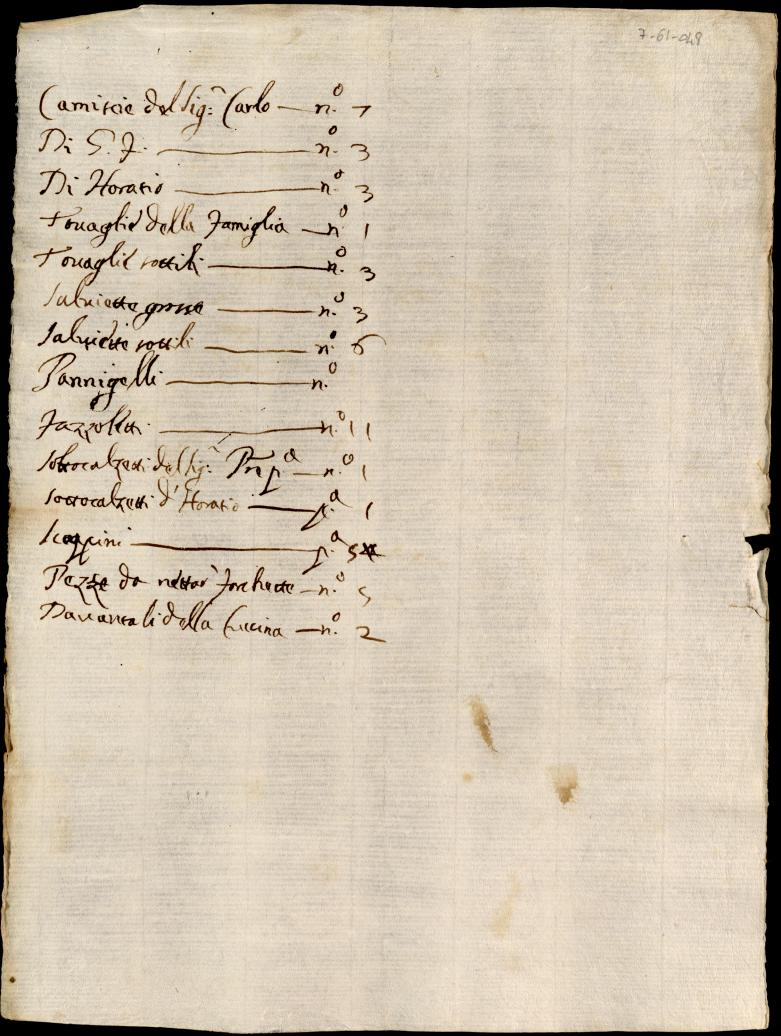 7-61-049
Camiscie del Sig.r Carlo — n.o 7
Di G. F. — n.o 3
Di Horatio — n.o 3
Touaglie della famiglia — n.o 1
Touaglie sottili — n.o 3
Saluiette grosse — n.o 3
Saluiette sottili — n.o 6
Pannigelli — n.o
fazzoletti — n.o 11
sottocalzetti del Sig.r — n.o 1
sottocalzetti d'Horatio — p.a 1
scappini — p.a 5
Pezze da nettar forchette — n.o 5
Dauantali della Cucina — n.o 2